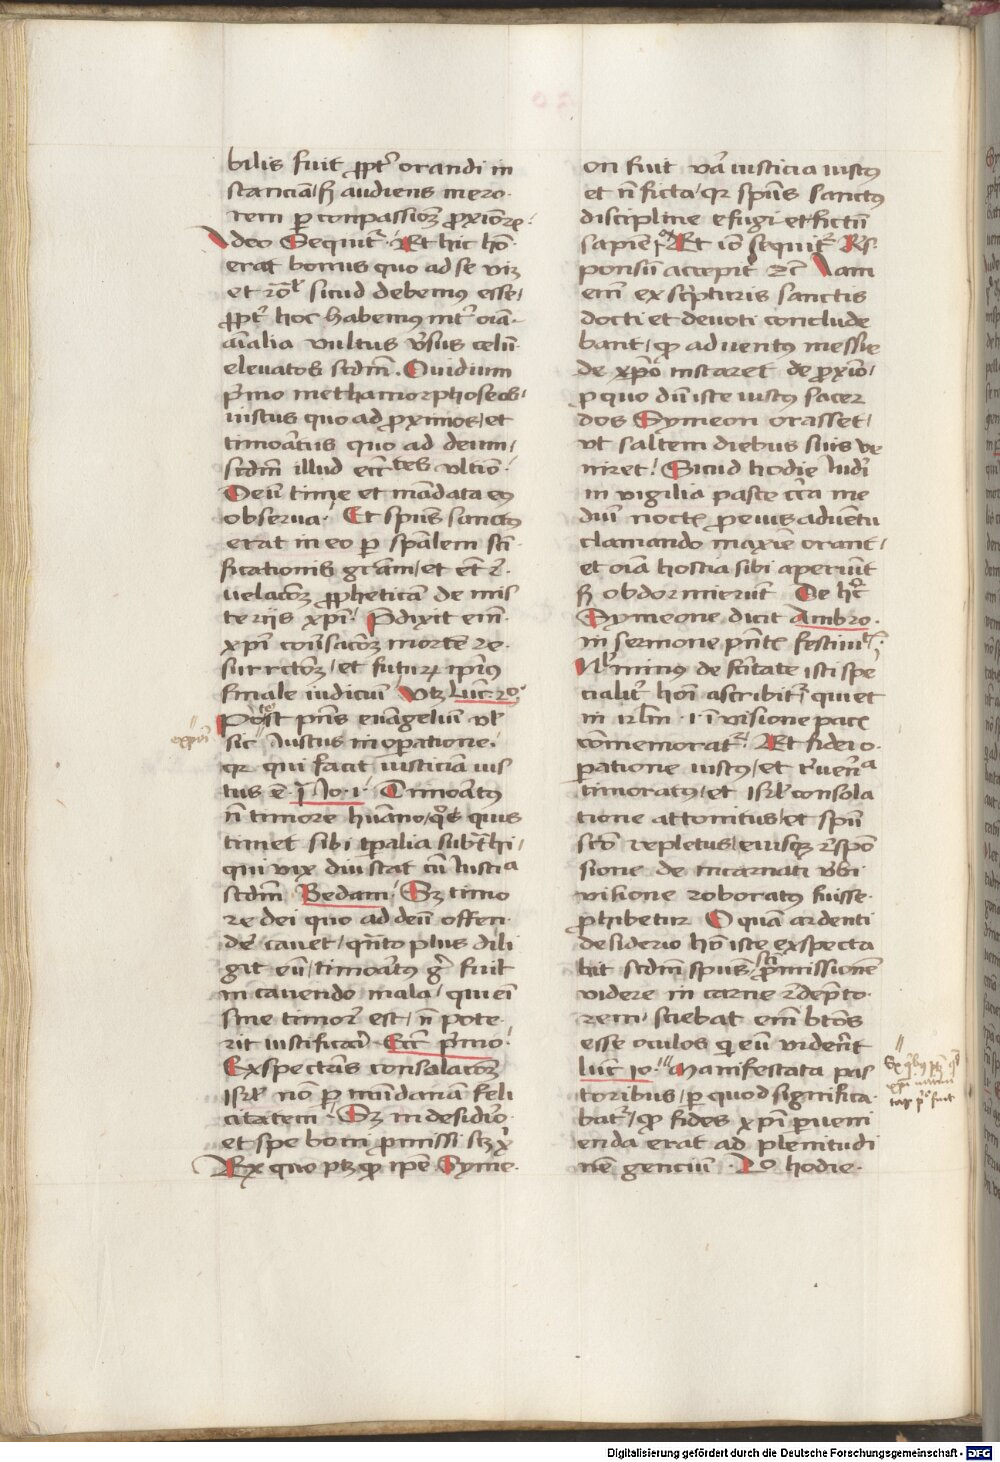 bilis fuit ꝓpt᷑ orandi in
stanciā / sꝫ audiens mero-
rem ꝑ compassionē ꝓxiore.
Ideo Sequit᷑. Et hic hō
erat bonus quo ad se viꝫ
et sicud debemus esse /
ꝓpt᷑ hoc habemus int᷑ oīa
aīalia vultus v᷑sus celū
eleuatos scdm̄. Ouidium
p᷑mo methamorphoseos
iustus quo ad ꝓximos / et
timoratus quo ad deum /
scdm̄ illud ecc̄tes vltiō.
Deū time et mādata eꝰ
obserua. Et spūs sanctus
erat in eo ꝑ spālem scī-
ficationis grām / et ēt r᷑-
uelacōꝫ ꝓpheticā de mis
terijs xp̄i. P̄dixit em̄
xp̄i mortē re-
surrectōꝫ / et futurꝫ ip̄ius
finale iudiciū Vtꝫ Luc̄ 20
Post p̄ns euāgeliū vl᷑
sic Iustus in operatione.
qꝛ qui facit iusticiā ius
tus ē. I Io. 1. Timoratus
n̄ timore hūano / quis
timet sibi tp̄alia subt᷑hi /
qui vix diu stat cū Iusticia
scdm̄ Bedam. Sꝫ timo
re dei quo ad deū offen-
dē cauet / q̄nto plus dili
git eū / timoratus g᷑ fuit
in cauendo mala / qui ei
sine timor᷑ est / n̄ pote-
rit iustificari. Ecc̄ p᷑mo.
Exspectās consolacōꝫ
isrl̄ nōn ꝑ mūdanam feli
citatem. Sꝫ in desiderio
et spe boni ꝓmissi scꝫ
Ex quo ptꝫ ꝙ ip̄e Syme-
on fuit v᷑a iusticia iustus
et n̄ ficta / qꝛ spūs sanctus
discipline efugiet fictū
sapien. Et iō sequit᷑ Rs-
ponsū accepit ꝛc̄ Nam
em̄ ex scripturis sanctis
docti et deuoti conclude
bant / ꝙ aduentus messie
de xp̄o instaret de ꝓxiō /
ꝓ quo dū iste iustus sacer
dos Symeon orasset /
vt saltem diebus suis ve
niret. Sicud hodie Iudi᷑
in vigilia pasce c̄ra me
diū noctꝭ ꝓ eius aduētu
clamando maxiē orant /
et oīa hostia sibi aperiūt
sꝫ obdormierūt De hͦc
Symeone dicit Ambro-
in sermone p̄ntꝭ festiuitꝭ.
Nō minus de scītate isti spe
cialit᷑ hōi ascribit᷑ / qui et
in irl̄m .i. ī visione pacꝭ
cōmemorat᷑. Et fide ī o-
peratione iustus / et
timoratus / et isrl̄ consola
tione attonitus / et spū
sctō repletus / eiusqꝫ r᷑spō
sione de incarnati v᷑bi
visione roboratus fuisse
ꝓhibetur O quā ardenti
desiderio hō iste exspecta
bit scdm̄ spūs sctī ꝓmissionē
videre in carne r᷑dēpto-
rem / sciebat em̄ btōs
esse oculos qi eū viderīt
Luc̄ 10. Manifestata pas
toribus / ꝑ quod significa-
bat᷑ / ꝙ fides xp̄i ꝑueni
enda erat ad plenitudi
nē genciū. Iō hodie-